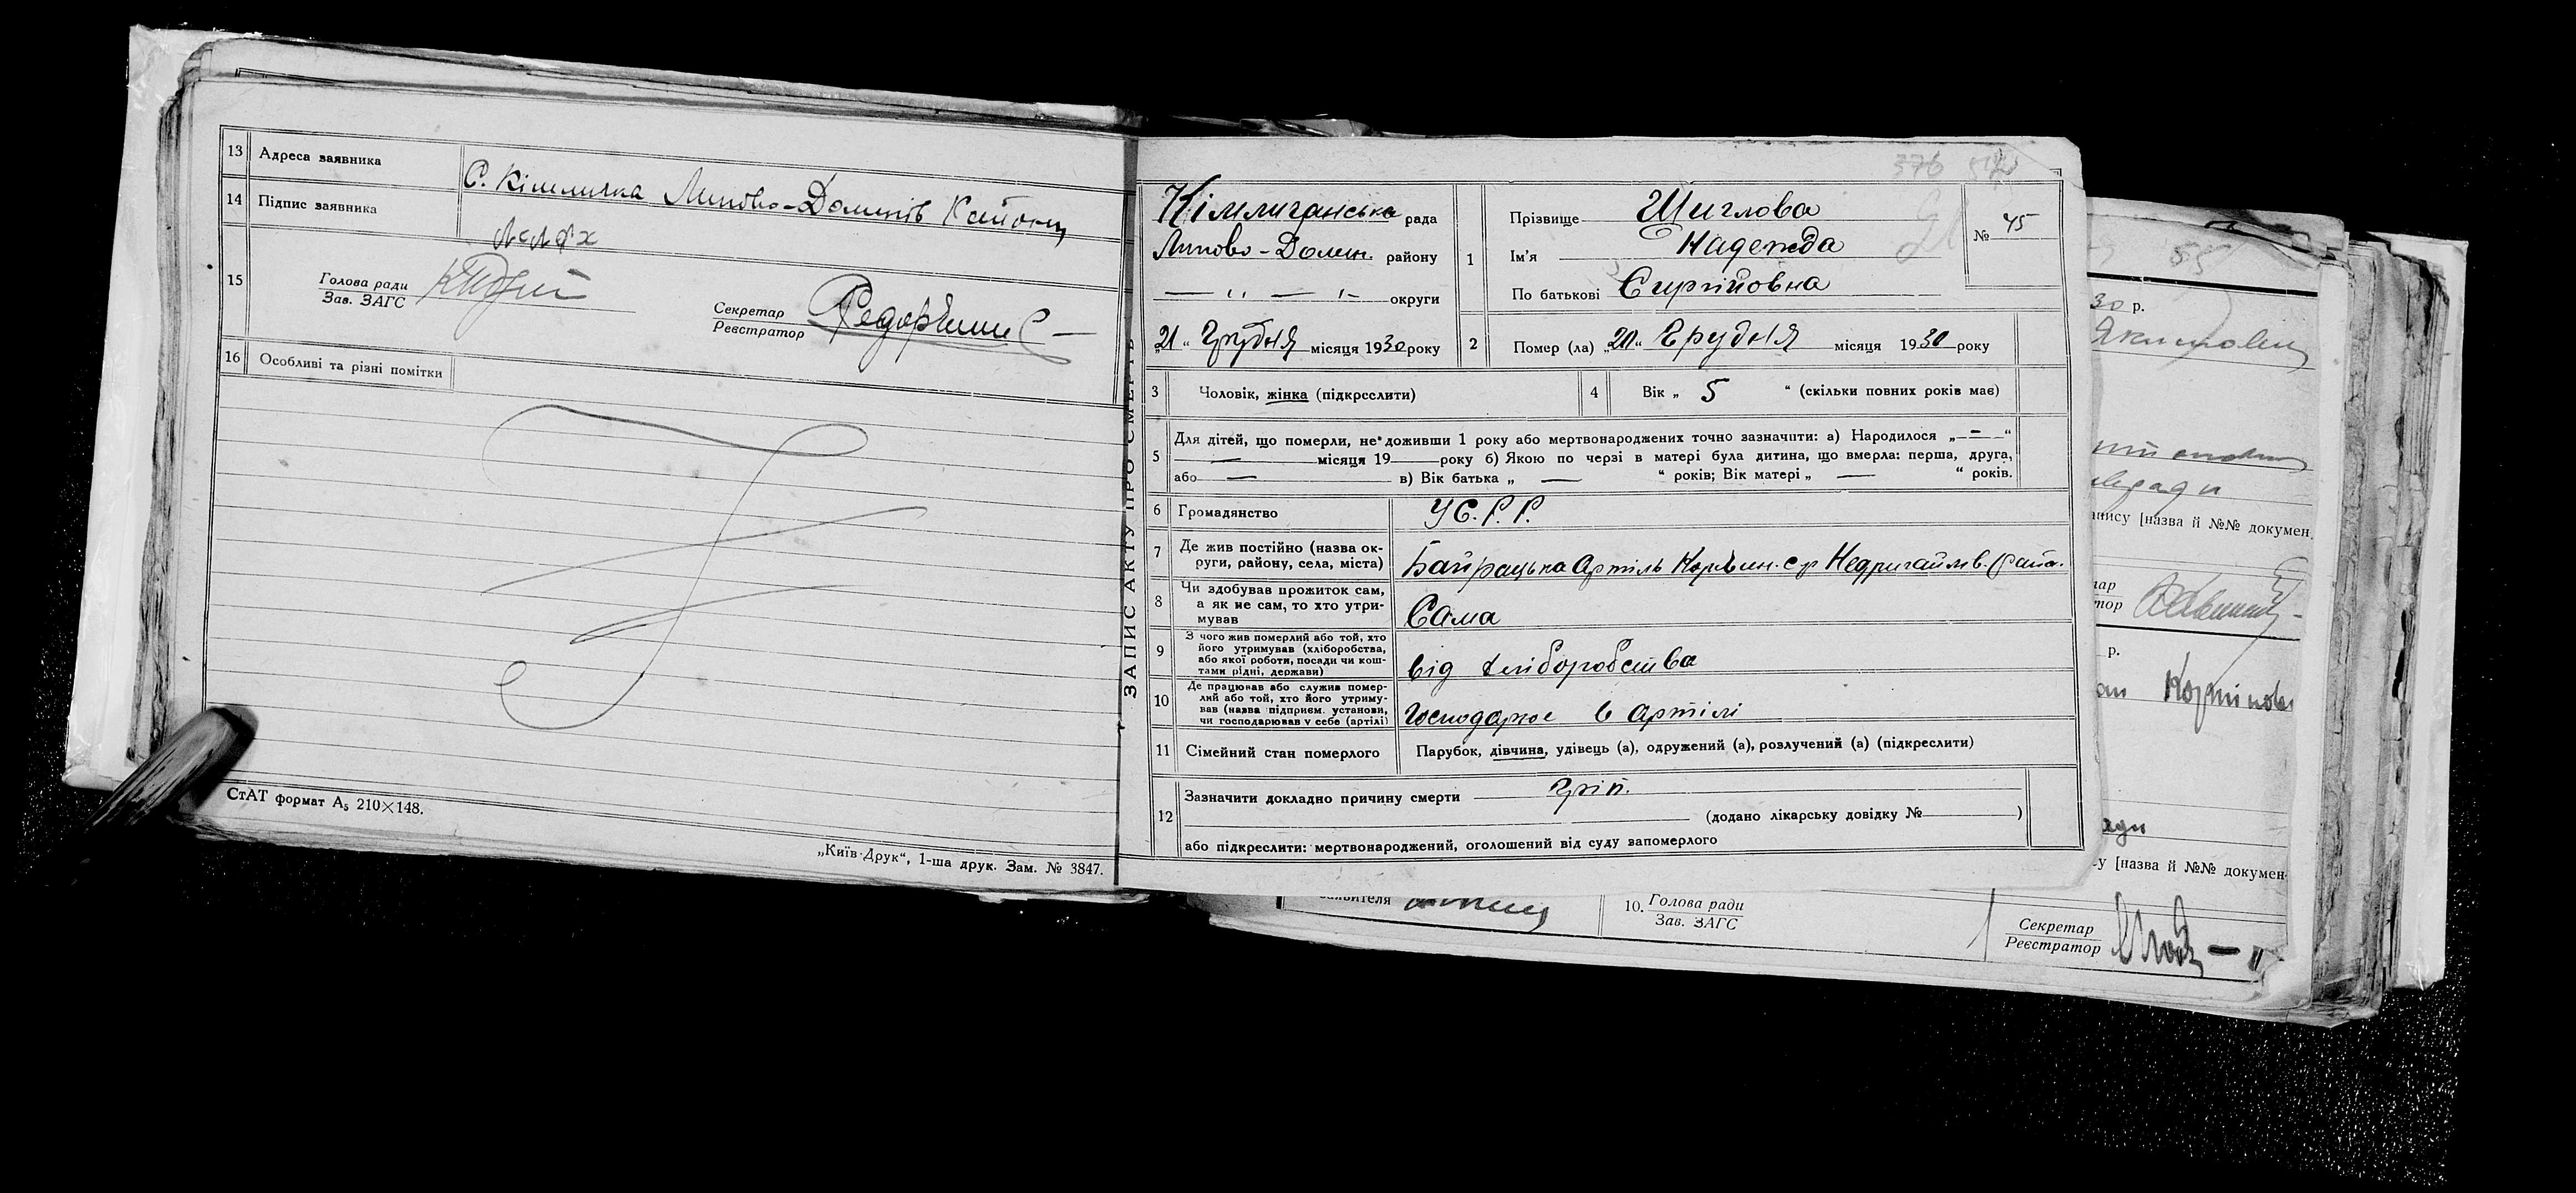 13 Адреса заявника С. Кімличка Липово-Долинів Району
14 Підпис заявника
15 Голова ради
Зав. ЗАГС
Секретар
Реєстратор
16 Особливі та різні помітки
СтАТ формат А5 210×148.
„Київ-Друк“, 1-ша друк. Зам. № 3847.
ЗАПИС АКТУ ПРО СМЕРТЬ
376
Кімличанська рада
Липово-Долин. району
— „ — „ — округи
„21“ Грудня місяця 1930 року
1 Прізвище Шиглова
Ім'я Надежда
По батькові Сиргійовна
№ 45
2 Помер (ла) „20“ Грудня місяця 1930 року
3 Чоловік, жінка (підкреслити)
4 Вік „ 5 “ (скільки повних років має)
5 Для дітей, що померли, не доживши 1 року або мертвонароджених точно зазначити: а) Народилося „—“
— місяця 19 року б) Якою по черзі в матері була дитина, що вмерла: перша, друга,
або — в) Вік батька „ — “ років; Вік матері „ — “ років.
6 Громадянство УС.Р.Р.
7 Де жив постійно (назва ок-
руги, району, села, міста) Байрацька Артіль с/р Недригайлів. Райо.
8 Чи здобував прожиток сам,
а як не сам, то хто утри-
мував Сама
9 З чого жив померлий або той, хто
його утримував (хліборобства,
або якої роботи, посади чи кош-
тами рідні, держави) від хліборобства
10 Де працював або служив помер-
лий або той, хто його утриму-
вав (назва підприєм. установи,
чи господарював у себе (артілі) Господарює в Артілі
11 Сімейний стан померлого Парубок, дівчина, удівець (а), одружений (а), розлучений (а) (підкреслити)
12 Зазначити докладно причину смерти Гріп.
(додано лікарську довідку № )
або підкреслити: мертвонароджений, оголошений від суду запомерлого
10. Голова ради
Зав. ЗАГС
Секретар
Реєстратор
55
30 р.
апису [назва й №№ докумен.
р.
у [назва й №№ докумен-